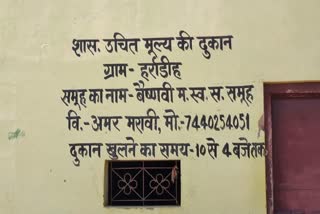 शास. उचित मूल्य की दुकान
ग्राम- हर्राडीह
समूह का नाम- वैष्णवी म.स्व.स. समूह
वि.- अमर मरावी, मो:-7440254051
दुकान खुलने का समय-10 से 4 बजे तक